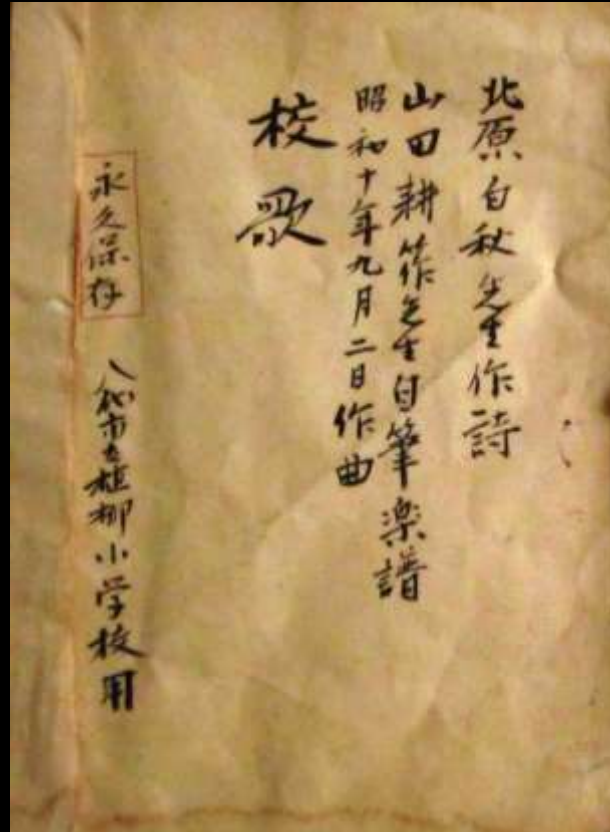 北原白秋先生作詩
山田耕筰先生自筆楽譜
昭和十年九月二日作曲
校歌
永久保存
八代市立植柳小学校用